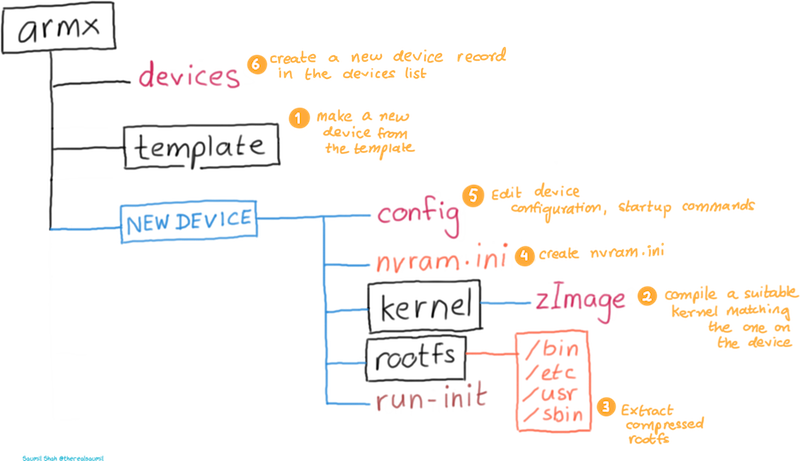 armx
devices
6 create a new device record
in the devices list
template
1 make a new
device from
the template
NEW DEVICE
config
5 Edit device
configuration, startup commands
nvram.ini
4 create nvram.ini
kernel
zImage
2 compile a suitable
kernel matching
the one on
the device
rootfs
/bin
/etc
/usr
/sbin
3 Extract
compressed
rootfs
run-init
Saumil Shah @therealsaumil